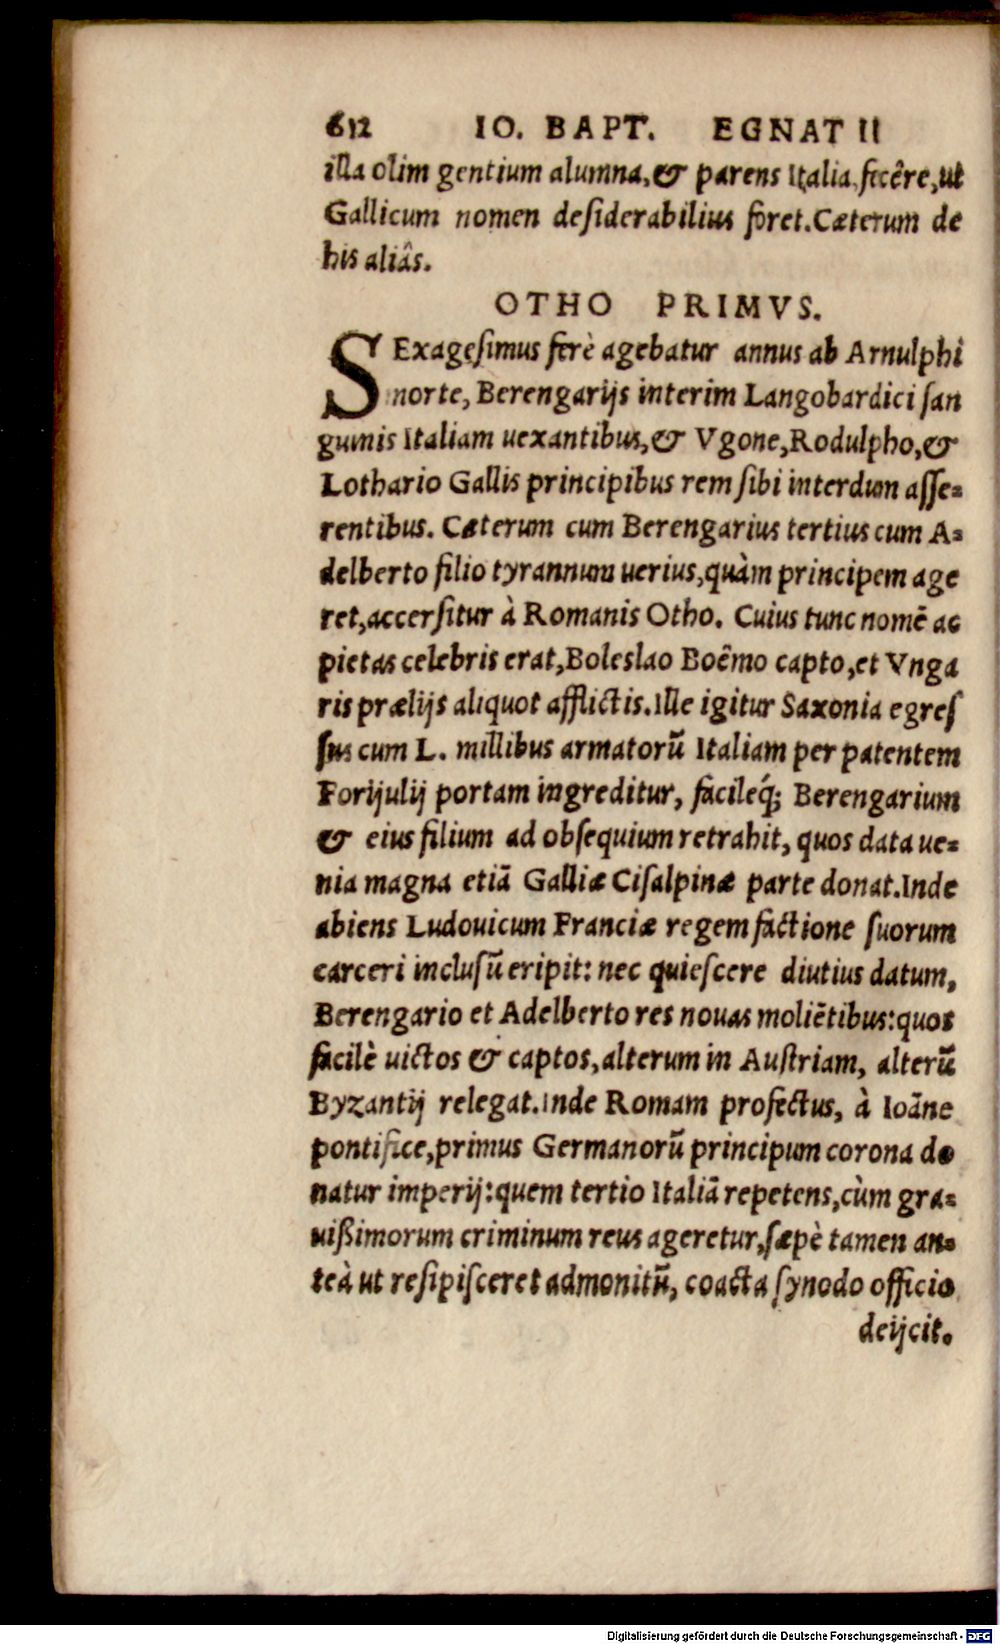 612 IO. BAPT. EGNATII
illa olim gentium alumna, & parens Italia, fecêre, ut
Gallicum nomen deſiderabilius foret. Cæterum de
his aliâs.
OTHO PRIMVS.
SExageſimus ferè agebatur annus ab Arnulphi
morte, Berengarijs interim Langobardici ſan
guinis Italiam uexantibus, & Vgone, Rodulpho, &
Lothario Gallis principibus rem ſibi interdum aſſe=
rentibus. Cæterum cum Berengarius tertius cum A=
delberto filio tyrannum uerius, quàm principem age
ret, accerſitur à Romanis Otho. Cuius tunc nomē ac
pietas celebris erat, Boleslao Boêmo capto, et Vnga
ris prælijs aliquot afflictis. Ille igitur Saxonia egreſ
ſus cum L. millibus armatorū Italiam per patentem
Forijulij portam ingreditur, facileq́; Berengarium
& eius filium ad obſequium retrahit, quos data ue=
nia magna etiā Galliæ Ciſalpinæ parte donat. Inde
abiens Ludouicum Franciæ regem factione ſuorum
carceri incluſū eripit: nec quieſcere diutius datum,
Berengario et Adelberto res nouas moliētibus: quos
facilè uictos & captos, alterum in Auſtriam, alterū
Byzantij relegat. Inde Romam profectus, à Ioāne
pontifice, primus Germanorū principum corona do
natur imperij: quem tertio Italiā repetens, cùm gra=
uißimorum criminum reus ageretur, ſæpè tamen an=
teà ut reſipiſceret admonitū, coacta ſynodo officio
deijcit.
Digitalisierung gefördert durch die Deutsche Forschungsgemeinschaft - DFG